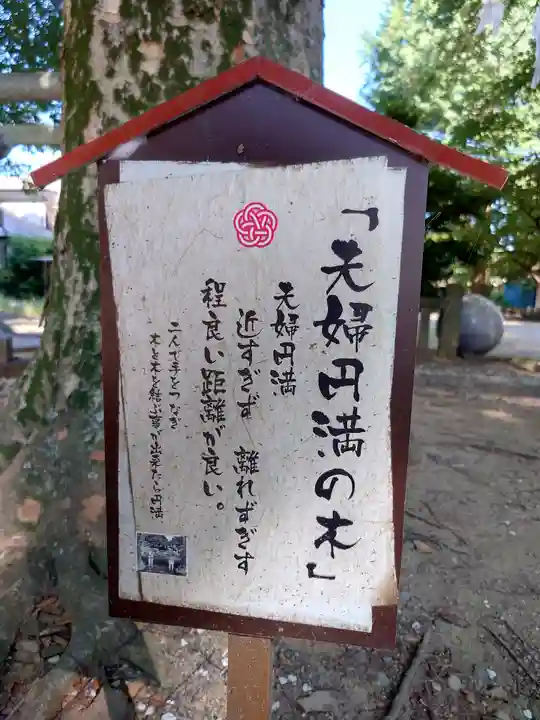 「夫婦円満の木」
夫婦円満
近すぎず 離れずぎす
程良い距離が良い。
二人で手をつなぎ
木と木を結ぶ事が出来たら円満